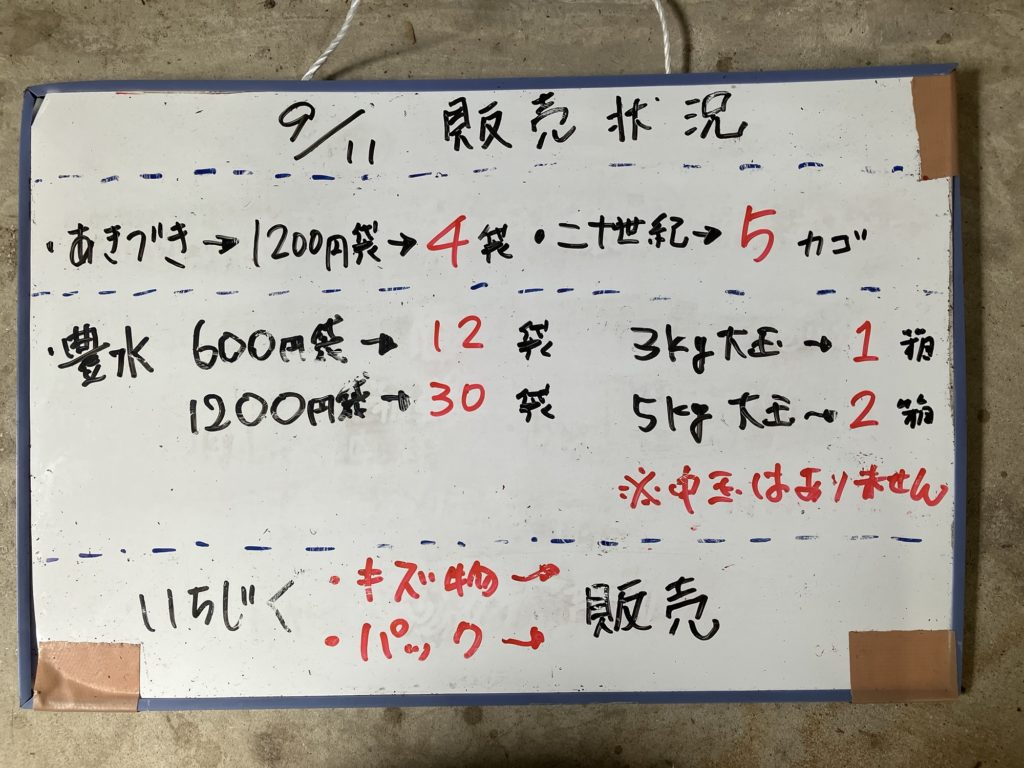 9/11 販売状況
・あきづき→1200円袋→4袋 ・二十世紀→5カゴ
・豊水 600円袋→12袋 3kg大玉→1箱
1200円袋→30袋 5kg大玉→2箱
※中玉はありません
いちじく ・キズ物→ 販売
・パック→